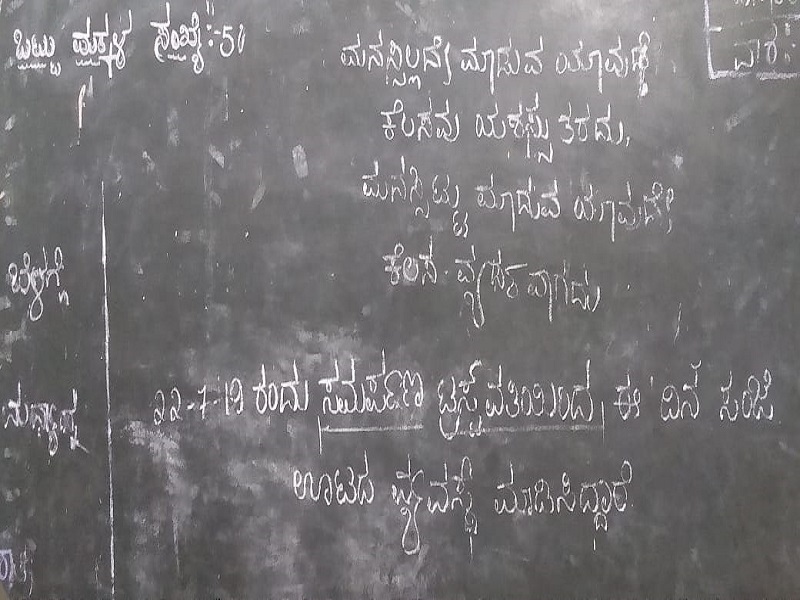 ಒಟ್ಟು ಮಕ್ಕಳ ಸಂಖ್ಯೆ:-51
ವಾರ:
ಮನಸ್ಸಿಲ್ಲದೇ ಮಾಡುವ ಯಾವುದೇ
ಕೆಲಸವು ಯಶಸ್ಸು ತರದು,
ಮನಸ್ಸಿಟ್ಟು ಮಾಡುವ ಯಾವುದೇ
ಕೆಲಸ ವ್ಯರ್ಥವಾಗದು
ಬೆಳಗ್ಗೆ
ಮಧ್ಯಾಹ್ನ
22-7-19 ರಂದು ಸಮರ್ಪಣ ಟ್ರಸ್ಟ್ ವತಿಯಿಂದ, ಈ ದಿನ ಸಂಜೆ
ಊಟದ ವ್ಯವಸ್ಥೆ ಮಾಡಿಸಿದ್ದಾರೆ